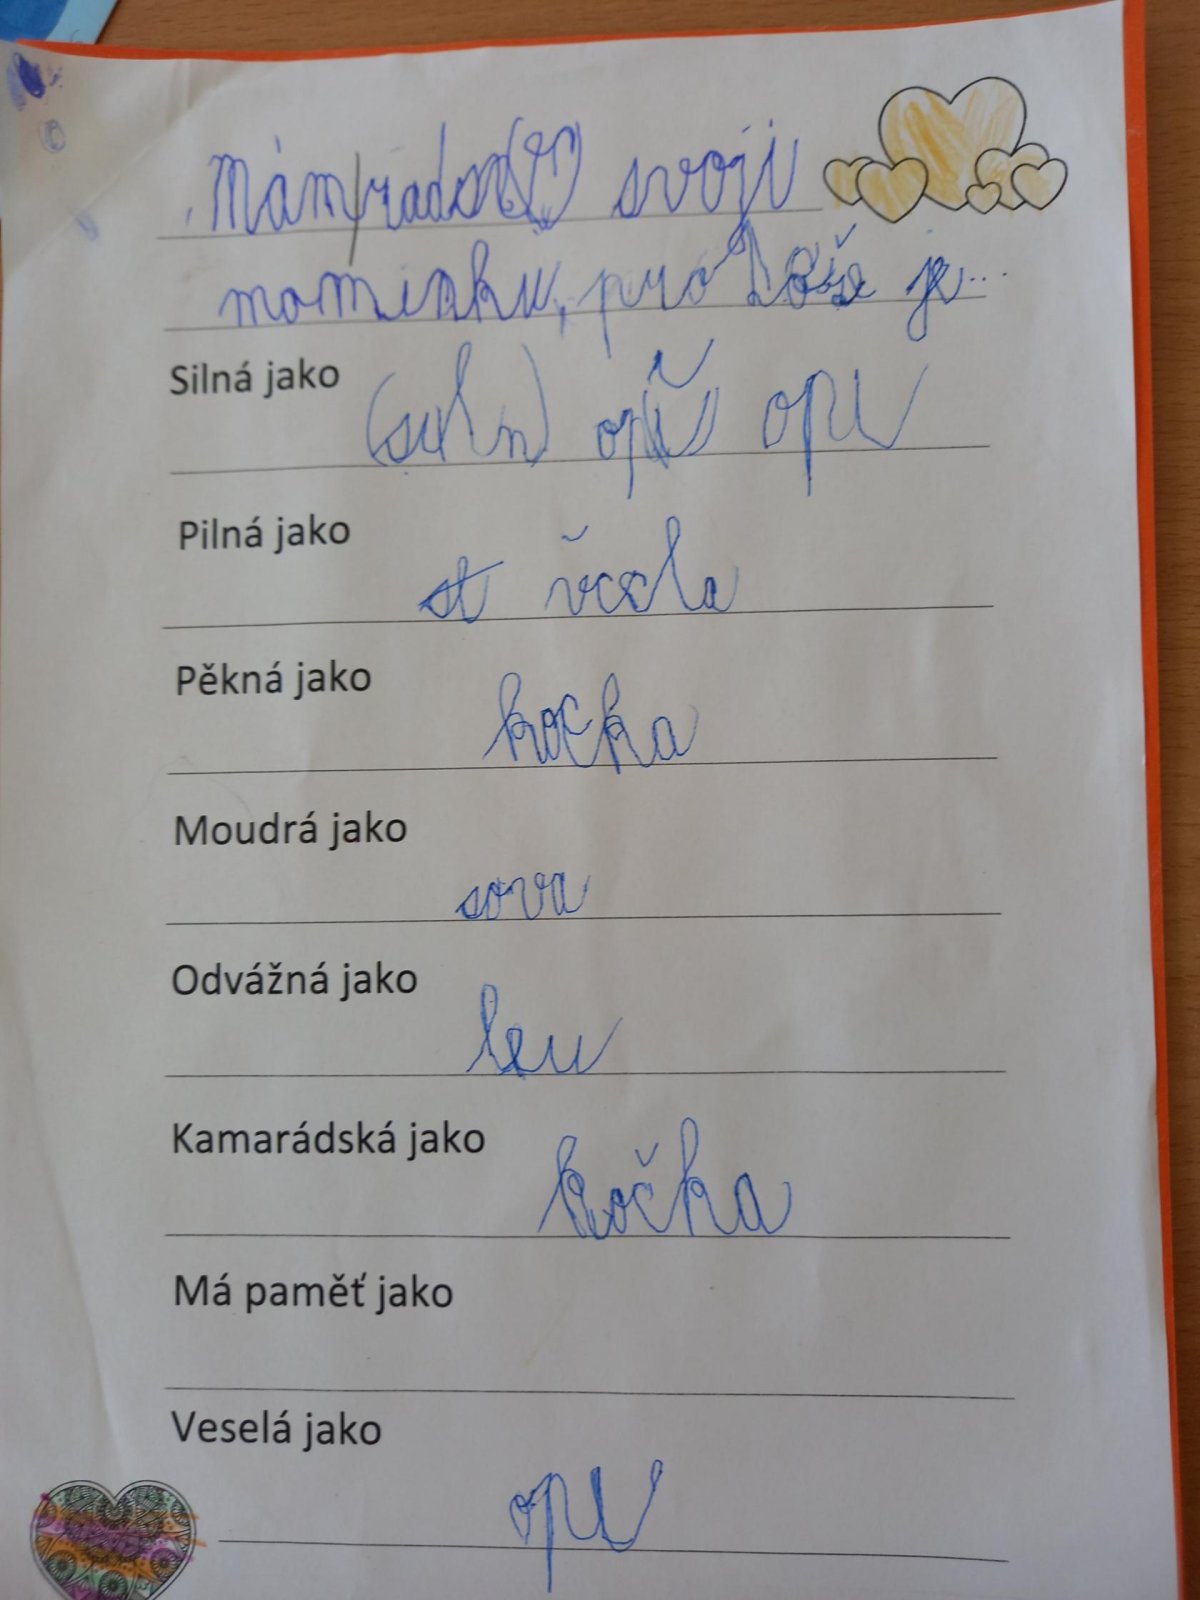 Mám rád svoji
maminku, protože je...
Silná jako
opi
Pilná jako
včela
Pěkná jako
kočka
Moudrá jako
sova
Odvážná jako
leu
Kamarádská jako
kočka
Má paměť jako
Veselá jako
opi